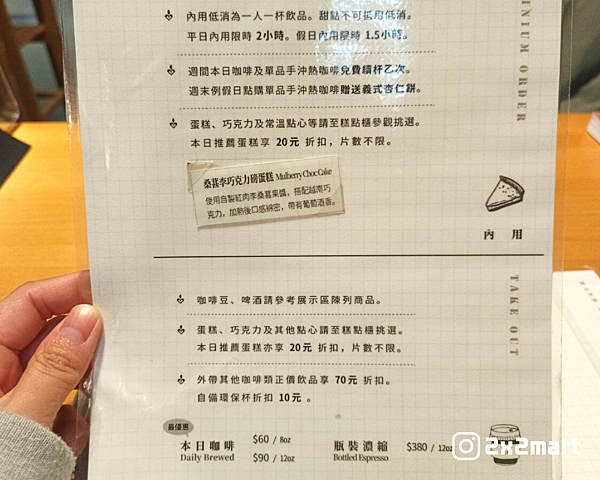 內用低消為一人一杯飲品。甜點不可抵用低消。
平日內用限時 2小時。假日內用限時 1.5小時。
週間本日咖啡及單品手沖熱咖啡免費續杯乙次。
週末例假日點購單品手沖熱咖啡贈送義式杏仁餅。
蛋糕、巧克力及常溫點心等請至糕點櫃參觀挑選。
本日推薦蛋糕享 20元 折扣，片數不限。
桑葚李巧克力磅蛋糕 Mulberry Choc Cake
使用自製紅肉李桑葚果醬，搭配越南巧
克力，加熱後口感綿密，帶有葡萄酒香。
INIUM ORDER
內用
咖啡豆、啤酒請參考展示區陳列商品。
蛋糕、巧克力及其他點心請至糕點櫃挑選。
本日推薦蛋糕亦享 20元 折扣，片數不限。
外帶其他咖啡類正價飲品享 70元 折扣。
自備環保杯折扣 10元 。
TAKE OUT
最優惠
本日咖啡 $60 / 8oz
Daily Brewed $90 / 12oz
瓶裝濃縮 $380 / 12oz
Bottled Espresso
2x2mart